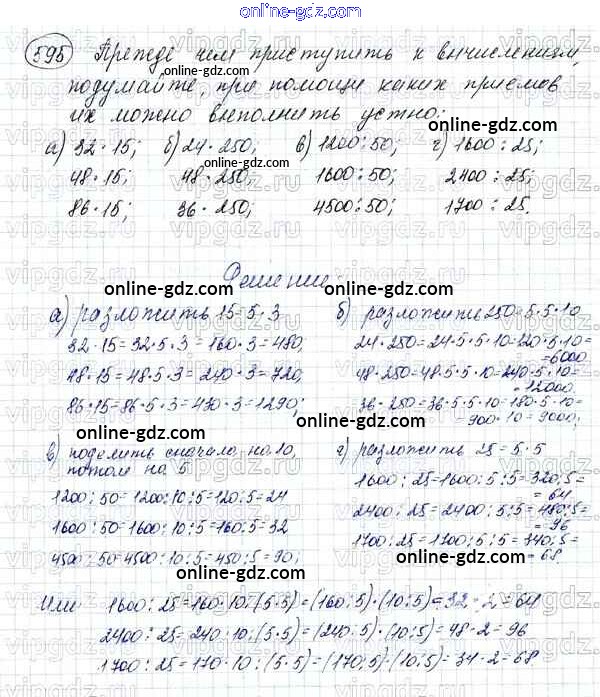 online-gdz.com
595 Прежде чем приступить к вычислениям,
online-gdz.com
подумайте, при помощи каких приемов
их можно выполнить устно:
online-gdz.com
а) 32·15; б) 24·250; в) 1200:50; г) 1600:25;
online-gdz.com
48·15; 48·250; 1600:50; 2400:25;
86·15; 36·250; 4500:50; 1700:25.
vipgdz.ru
Решение:
online-gdz.com
а) разложить 15=5·3 б) разложить 250=5·5·10
32·15=32·5·3=160·3=480; 24·250=24·5·5·10=120·5·10=
=6000
48·15=48·5·3=240·3=720; 48·250=48·5·5·10=240·5·10=
=12000
86·15=86·5·3=430·3=1290; 36·250=36·5·5·10=180·5·10=
=900·10=9000;
online-gdz.com
в) поделить сначала на 10, г) разложить 25=5·5
потом на 5
1600:25=1600:5:5=320:5=
=64
1200:50=1200:10:5=120:5=24
2400:25=2400:5:5=480:5=
=96
1600:50=1600:10:5=160:5=32
1700:25=1700:5:5=340:5=
=68
4500:50=4500:10:5=450:5=90;
online-gdz.com
online-gdz.com
Или 1600:25=160·10:(5·5)=(160:5)·(10:5)=32·2=64
2400:25=240·10:(5·5)=(240:5)·(10:5)=48·2=96
1700:25=170·10:(5·5)=(170:5)·(10:5)=34·2=68
online-gdz.com